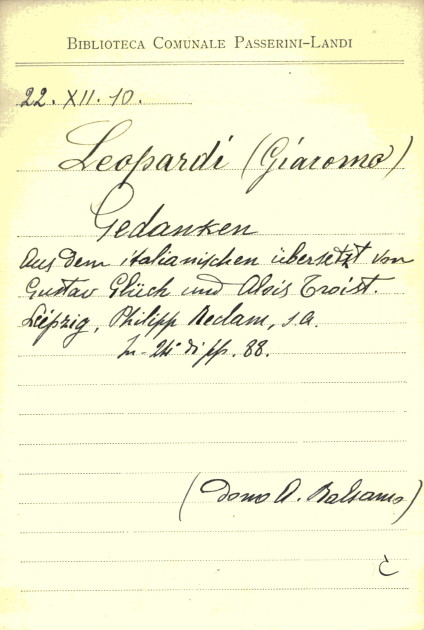 BIBLIOTECA COMUNALE PASSERINI-LANDI
22. XII. 10.
Leopardi (Giacomo)
Gedanken
Aus dem italianischen übersetzt von
Gustav Glück und Alois Troist.
Leipzig, Philipp Reclam, s.a.
In-24° di pp. 88.
(dono A. Balsamo)